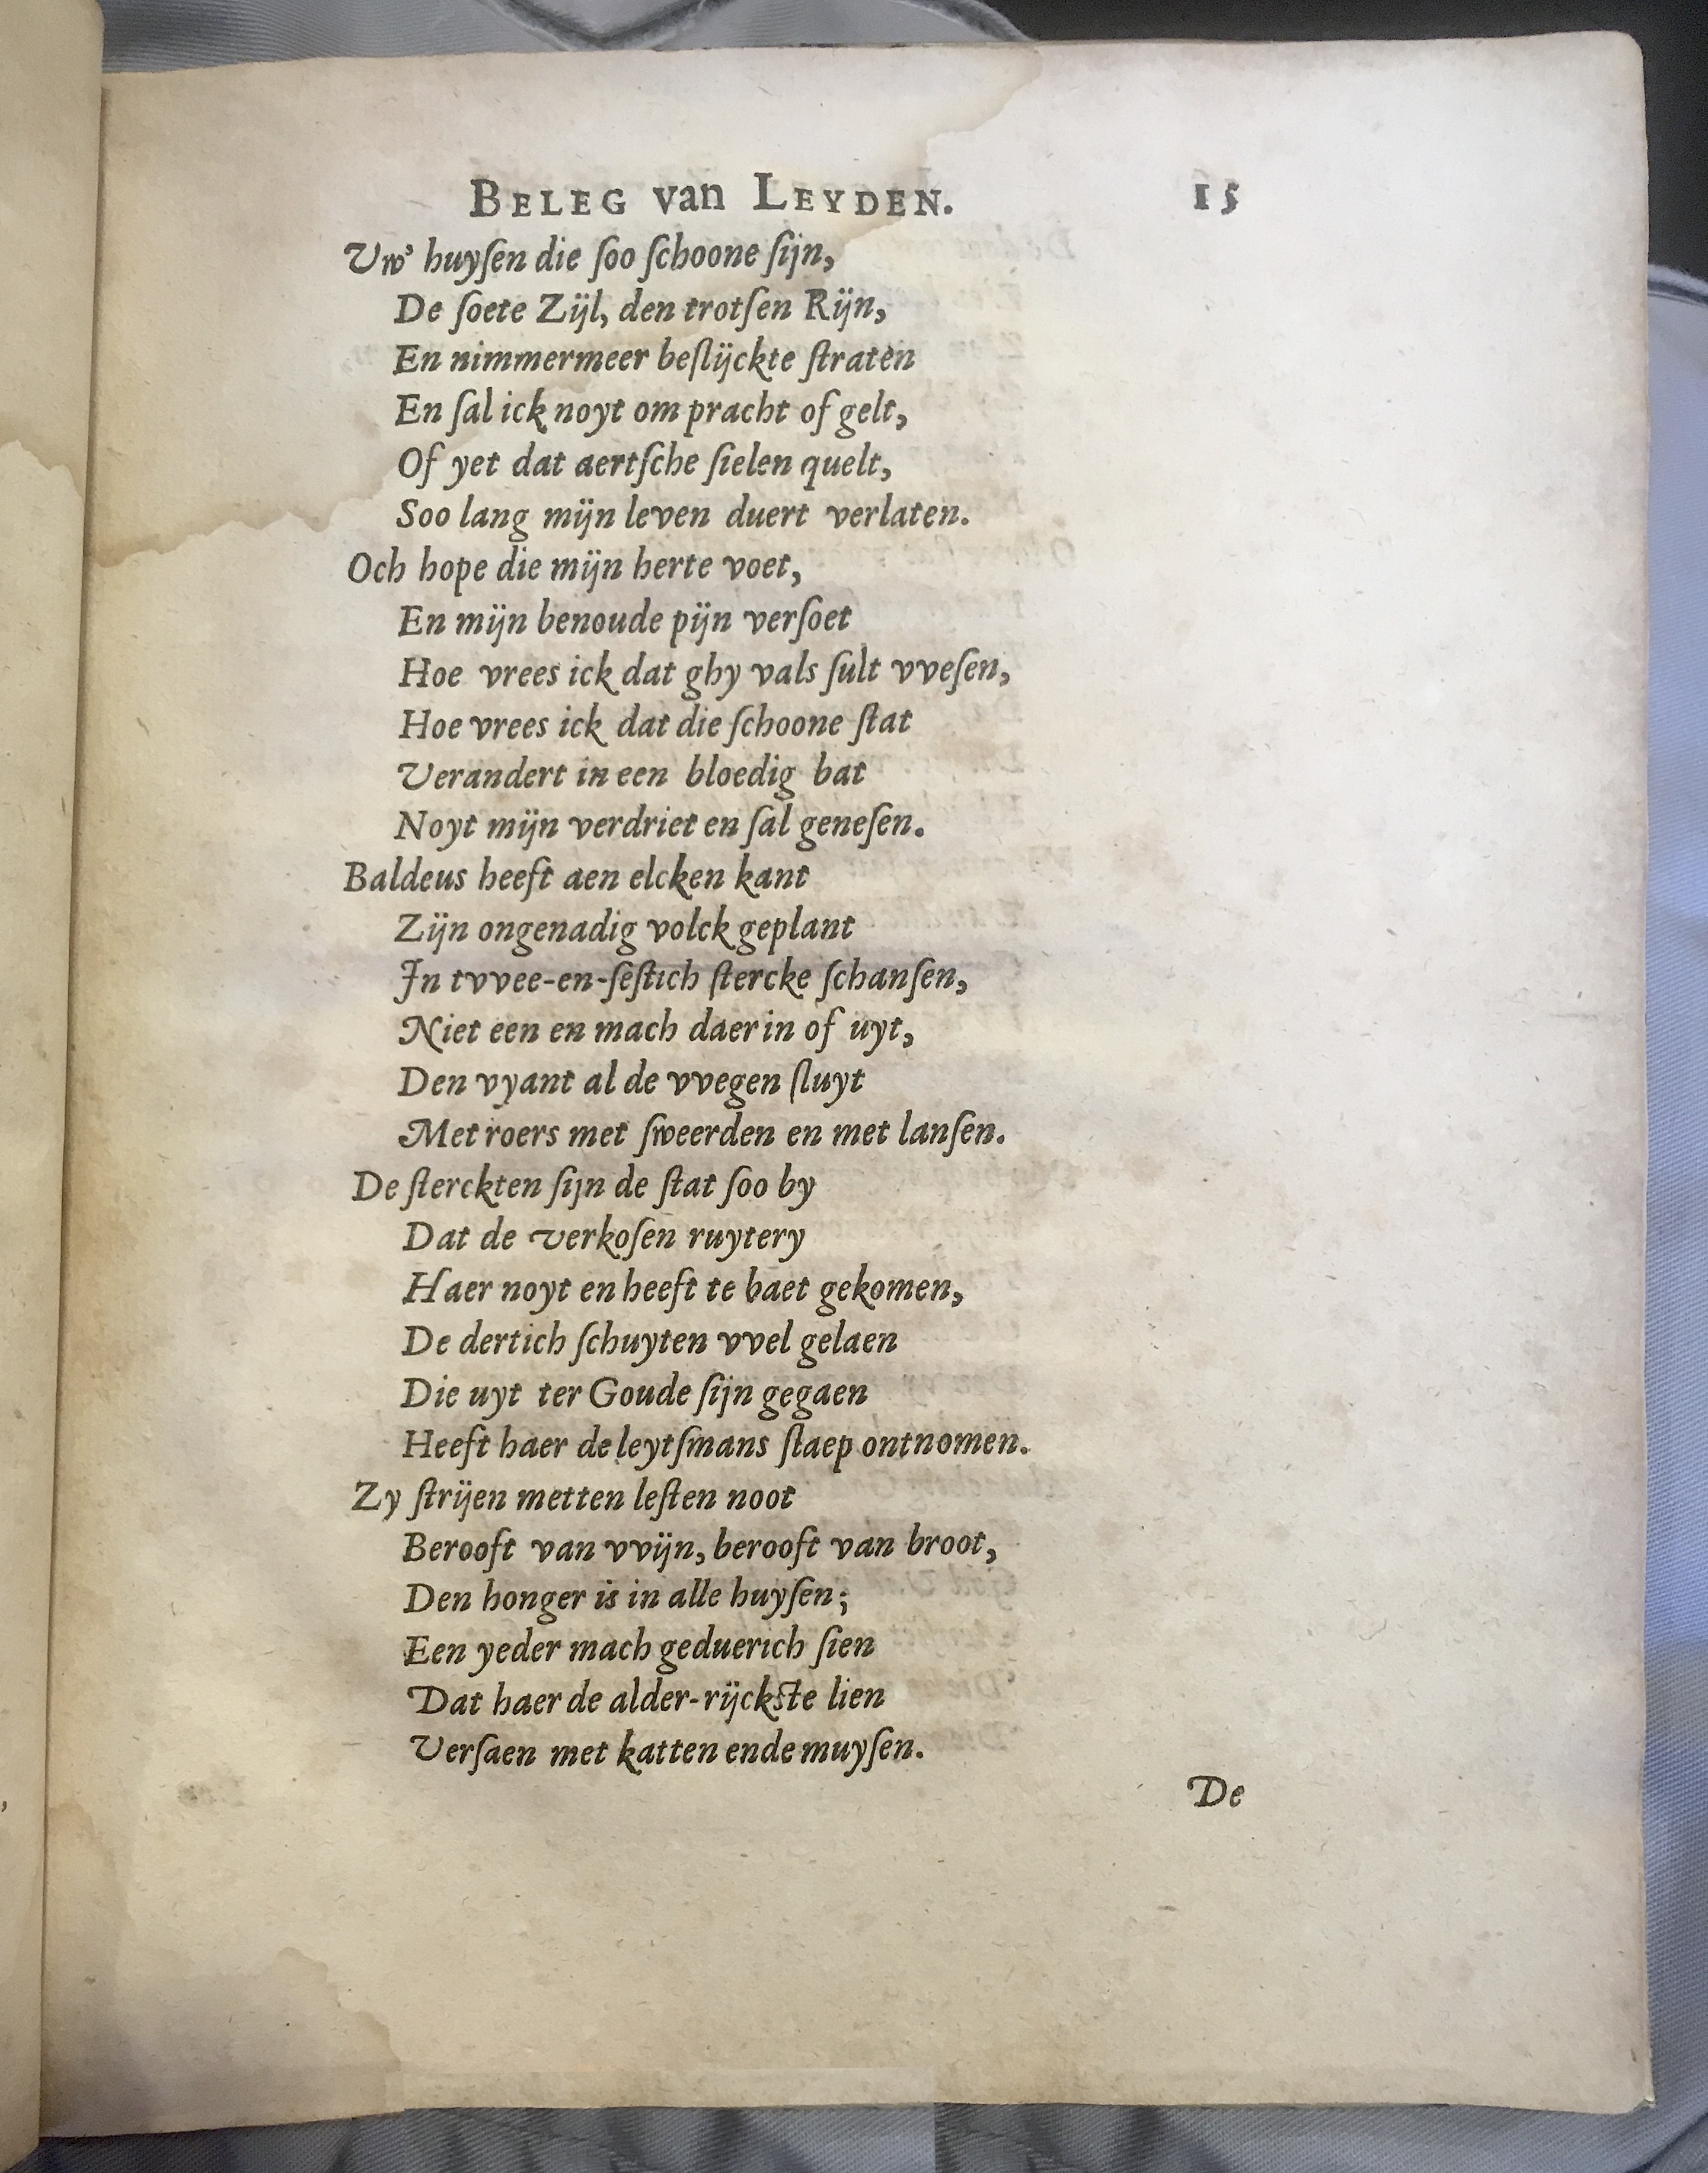 BELEG van LEYDEN. 15
Uw' huyſen die ſoo ſchoone ſijn,
De ſoete Zijl, den trotſen Rijn,
En nimmermeer beſlijckte ſtraten
En ſal ick noyt om pracht of gelt,
Of yet dat aertſche ſielen quelt,
Soo lang mijn leven duert verlaten.
Och hope die mijn herte voet,
En mijn benoude pijn verſoet
Hoe vrees ick dat ghy vals ſult vveſen,
Hoe vrees ick dat die ſchoone ſtat
Verandert in een bloedig bat
Noyt mijn verdriet en ſal geneſen.
Baldeus heeft aen elcken kant
Zijn ongenadig volck geplant
In tvvee-en-ſeſtich ſtercke ſchanſen,
Niet een en mach daer in of uyt,
Den vyant al de vvegen ſluyt
Met roers met ſweerden en met lanſen.
De ſterckten ſijn de ſtat ſoo by
Dat de verkoſen ruytery
Haer noyt en heeft te baet gekomen,
De dertich ſchuyten vvel gelaen
Die uyt ter Goude ſijn gegaen
Heeft haer de leytſmans ſlaep ontnomen.
Zy ſtrijen metten leſten noot
Berooft van vvijn, berooft van broot,
Den honger is in alle huyſen;
Een yeder mach geduerich ſien
Dat haer de alder-rijckſte lien
Verſaen met katten ende muyſen.
De